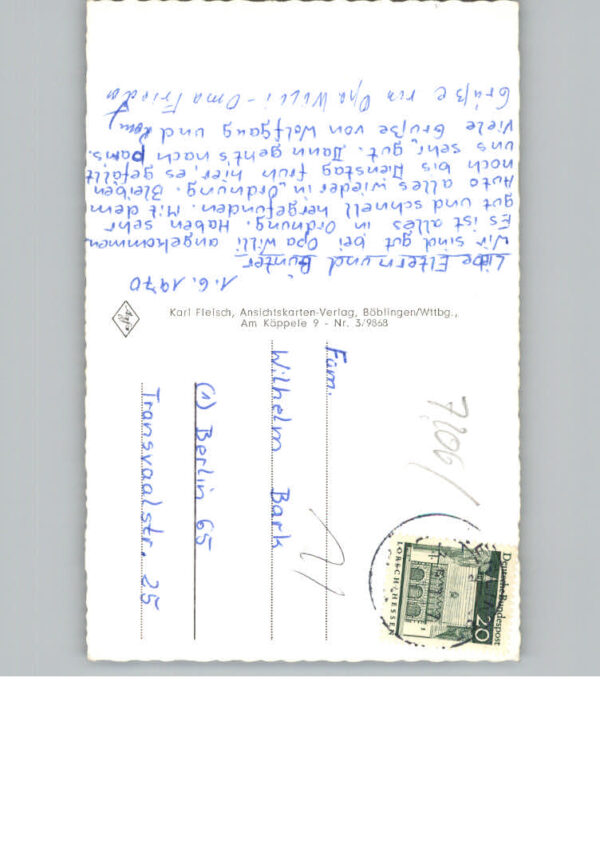 1.6.1970
Liebe Eltern und Günter
Wir sind gut bei Opa Willi angekommen
Es ist alles in Ordnung. Haben sehr
gut und schnell hergefunden. Mit dem
Auto alles wieder in „Ordnung. Bleiben
noch bis Dienstag früh hier, es gefällt
uns sehr gut. Dann gehts nach
Viele Grüße von Wolfgang und
Grüße von Opa Willi - Oma Frieda
Karl Fleisch, Ansichtskarten-Verlag, Böblingen/Wttbg.,
Am Käppele 9 - Nr. 3/9868
Agfa
Fam.
Wilhelm Bark
(1) Berlin 65
Transvaalstr. 25
7,106/
Deutsche Bundespost
20
LORSCH/HESSEN